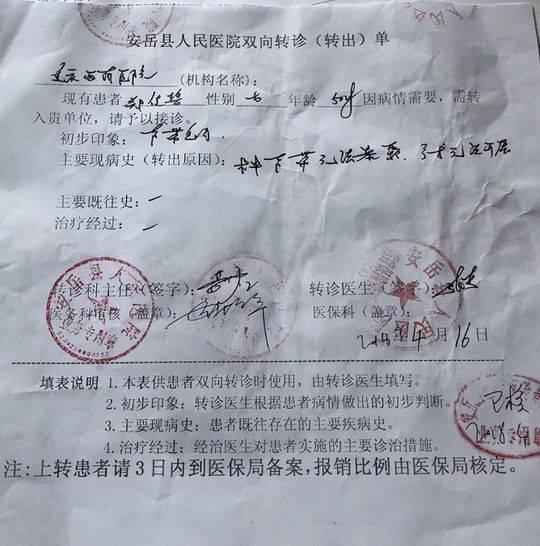 安岳县人民医院双向转诊（转出）单
重庆西南医院 （机构名称）：
现有患者 性别 女 年龄 50岁 因病情需要，需转
入贵单位，请予以接诊。
初步印象：
主要现病史（转出原因）：
主要既往史：一
治疗经过：一
转诊科主任（签字）： 转诊医生（签字）：
医务科审核（盖章）： 医保科（盖章）：
2018年4月16日
安岳县人民医院
填表说明 1. 本表供患者双向转诊时使用，由转诊医生填写。
2. 初步印象：转诊医生根据患者病情做出的初步判断。
3. 主要现病史：患者既往存在的主要疾病史。
4. 治疗经过：经治医生对患者实施的主要诊治措施。
已核
注：上转患者请3日内到医保局备案，报销比例由医保局核定。